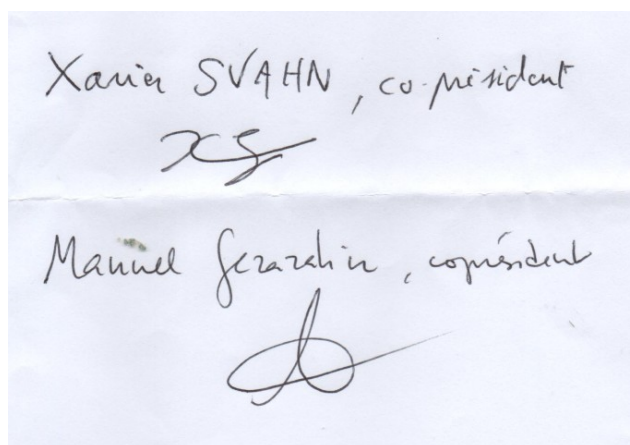 Xavier SVAHN, co-président
XS
Manuel Gerardin, coprésident